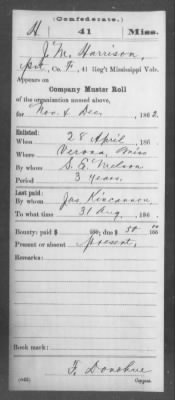 (Confederate.)
H 41 Miss.
J. M. Harrison,
Pvt, Co. H, 41 Reg't Mississippi Vols.
Appears on
Company Muster Roll
of the organization named above,
for Nov. & Dec., 1862.
Enlisted:
When 28 April, 186
Where Verona, Miss
By whom S. E. Nelson
Period 3 years.
Last paid:
By whom Jas Kincannon
To what time 31 Aug, 186
Bounty: paid $ 100; due $ 50 00/100
Present or absent Present.
Remarks:
Book mark:
F. Donohue
(642) Copyist.